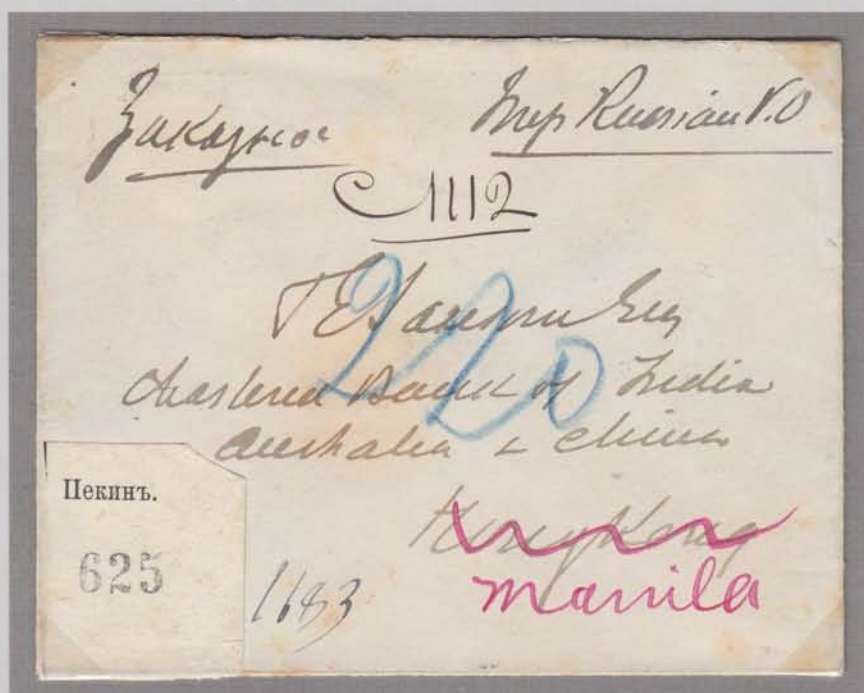 Заказное
Imp Russian P.O
1112
T E Esq
220
Chartered Bank of India
Australia & China
Hong Kong
manila
Пекинъ.
625
1683